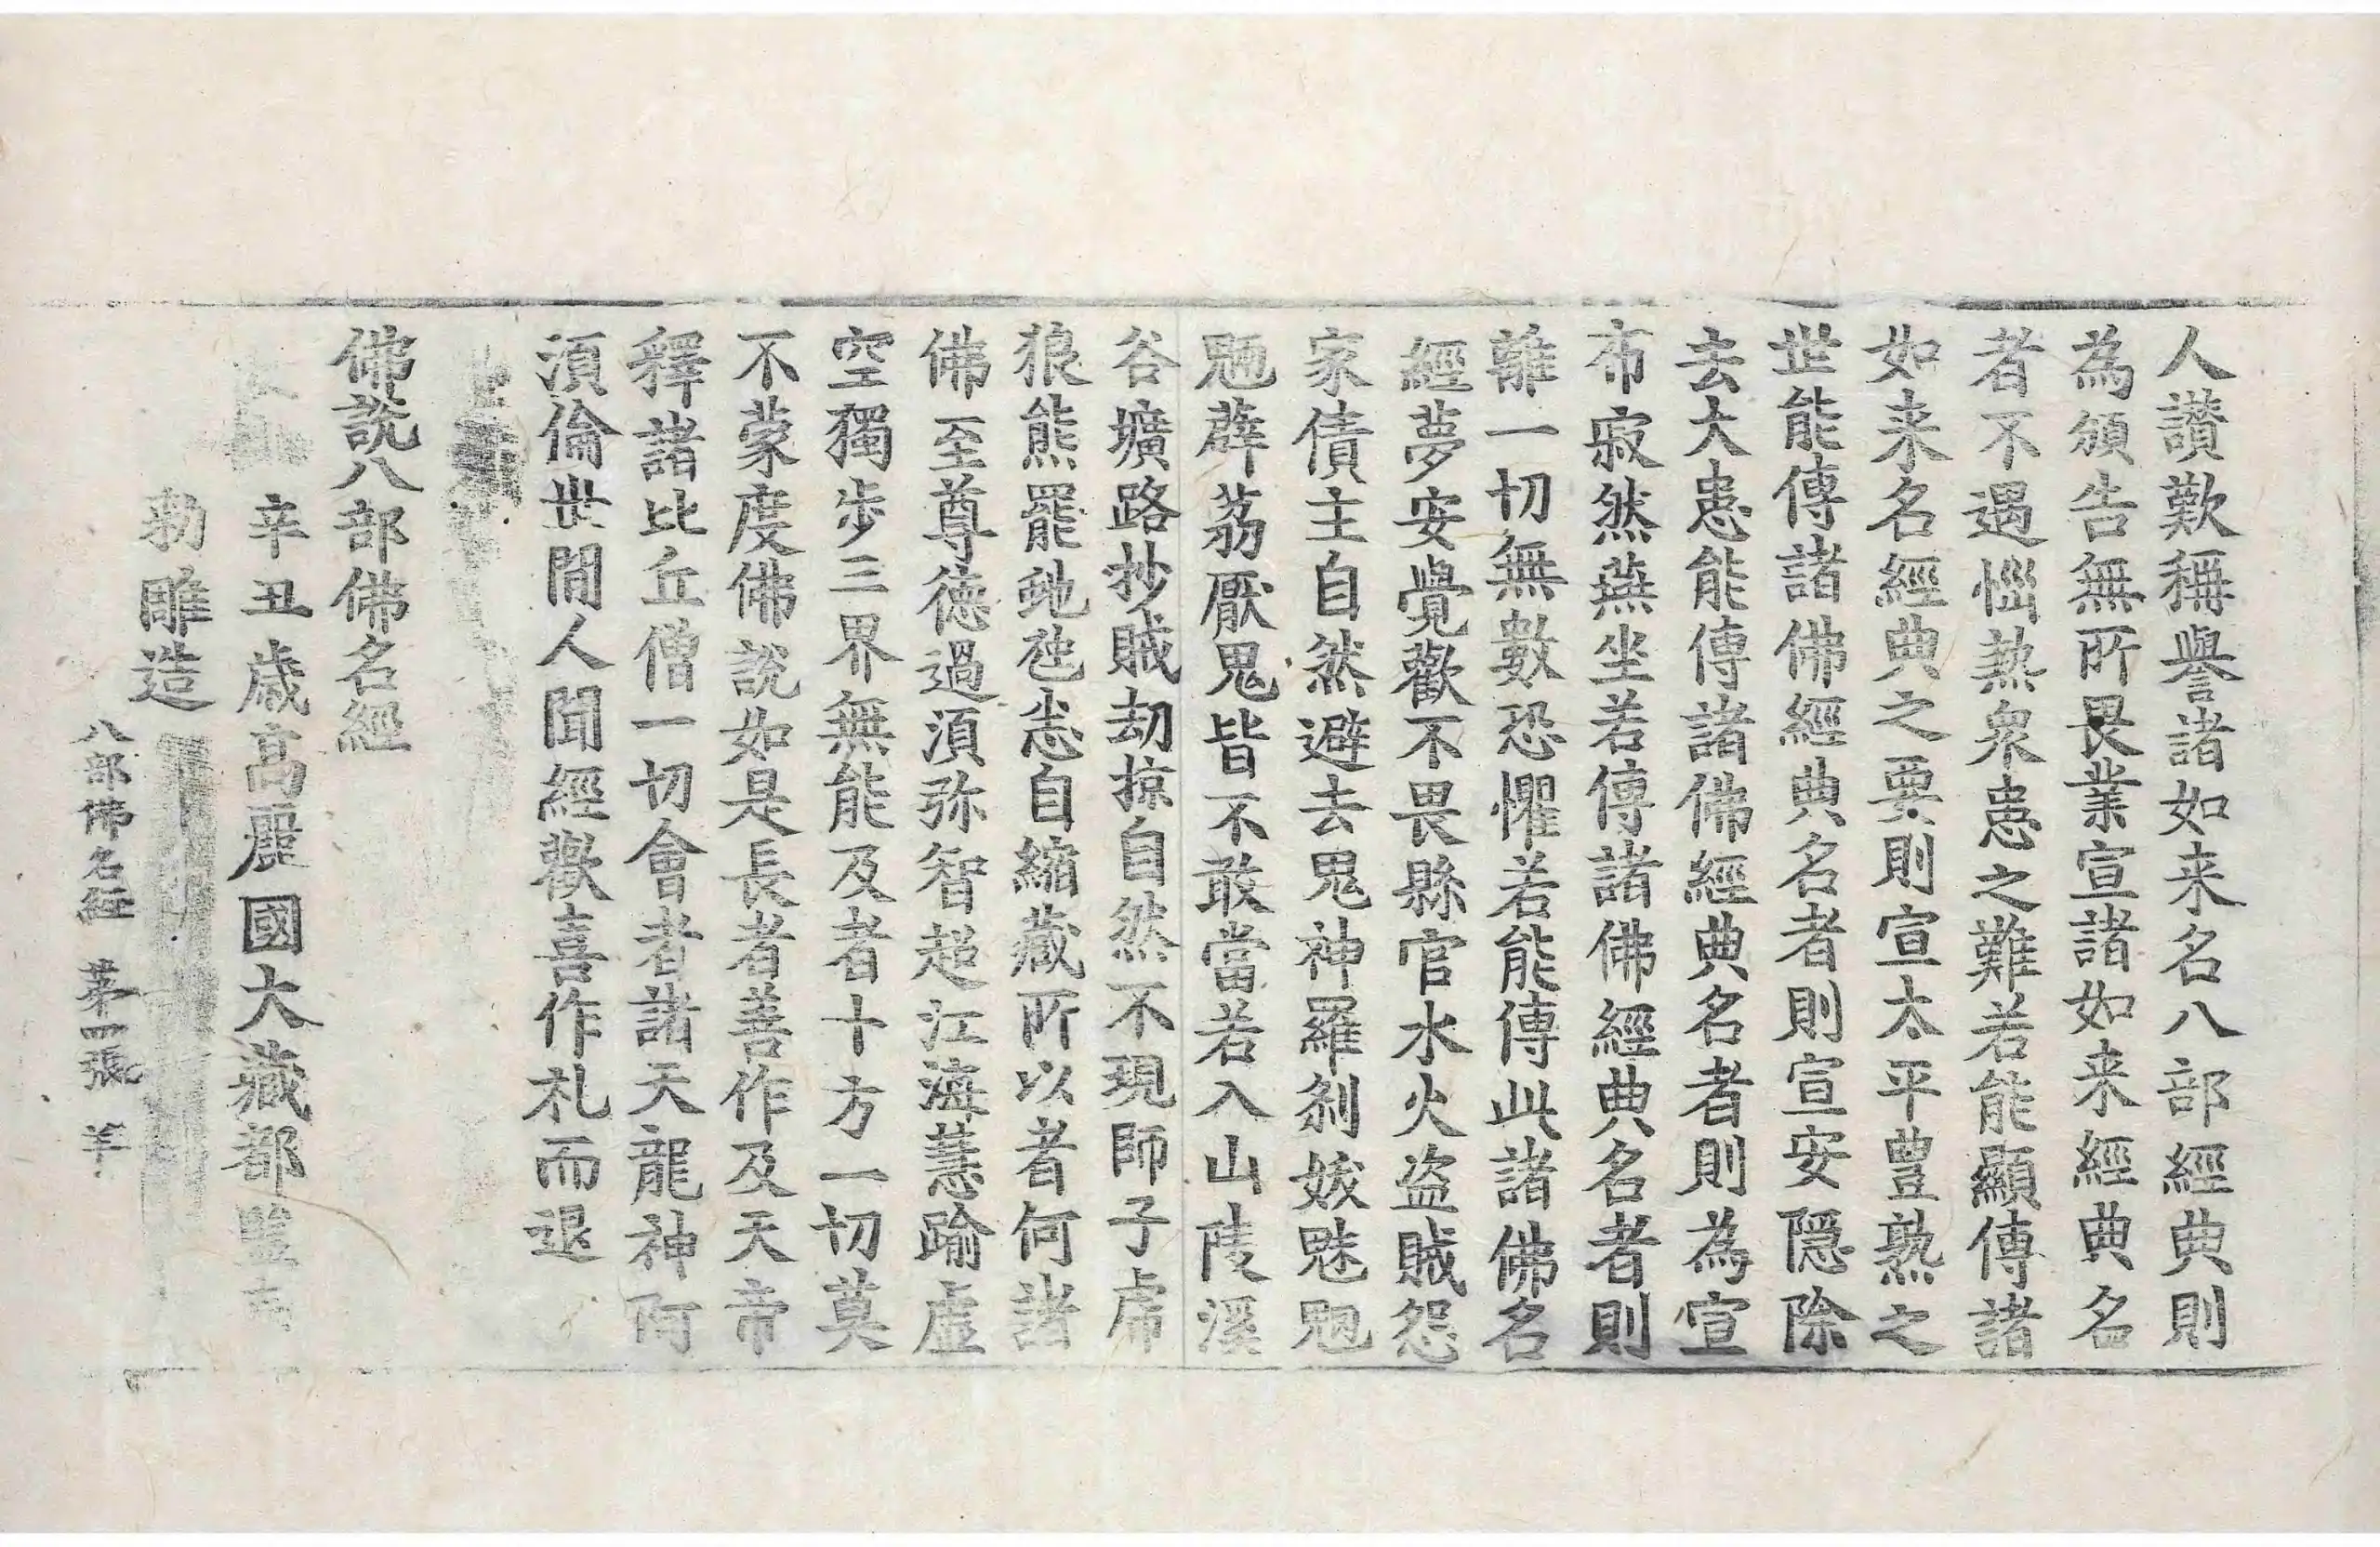 人讃歎稱譽諸如来名八部經典則
為頒告無所畏業宣諸如来經典名
者不遇惱熱衆患之難若能顯傳諸
如来名經典之要則宣太平豊熟之
世能傳諸佛經典名者則宣安隱除
去大患能傳諸佛經典名者則為宣
布寂然燕坐若傳諸佛經典名者則
離一切無數恐懼若能傳此諸佛名
經夢安覺歡不畏縣官水火盗賊怨
家債主自然避去鬼神羅剎妭魅魍
魎薜荔厭鬼皆不敢當若入山陵溪
谷壙路抄賊劫掠自然不現師子虎
狼熊羆虵虺恙自縮藏所以者何諸
佛至尊德過湏弥智超江海慧踰虛
空獨步三界無能及者十方一切莫
不蒙度佛說如是長者善作及天帝
釋諸比丘僧一切會者諸天龍神阿
湏倫世間人聞經歡喜作礼而退
佛說八部佛名經
辛丑歳高麗國大藏都監奉
勅雕造
八部佛名經 苐四張 羊